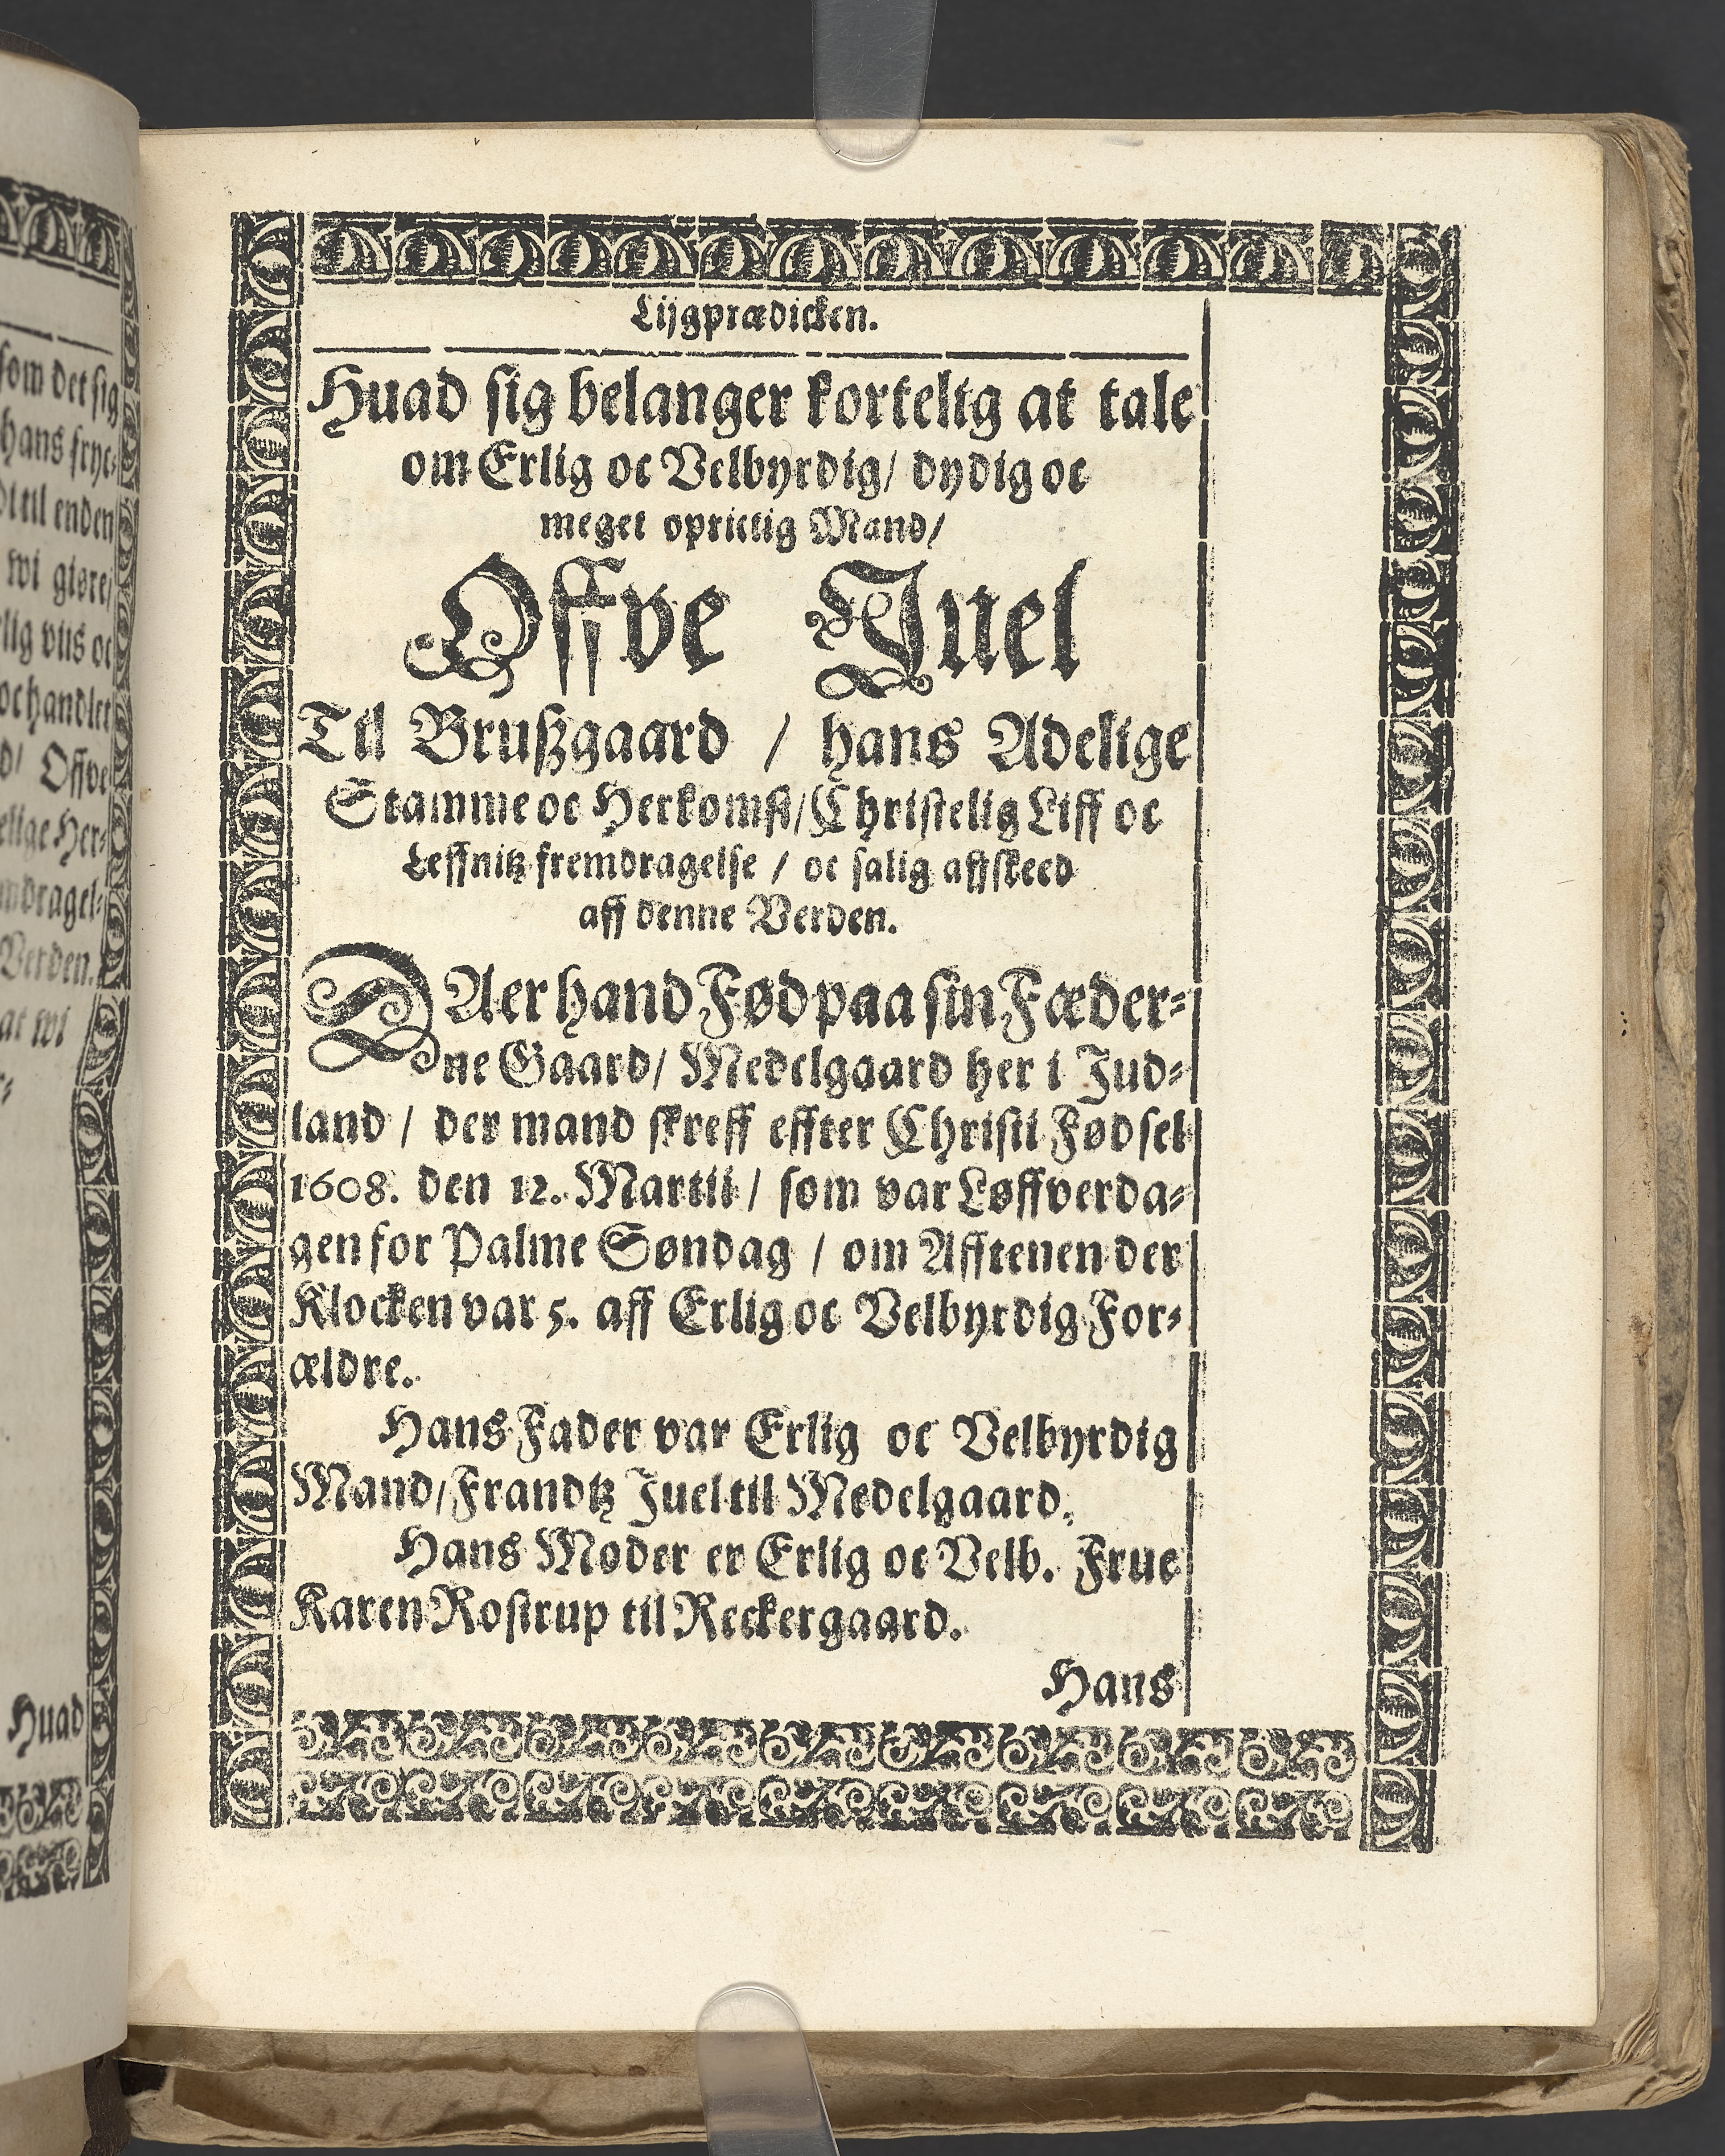 som det sig
hans fryc-
til enden
wi giøre/
lig viis oc
oc handlet
Offve
elige Her-
mdragel-
Verden.
at wi
Huad
Lijgprædicken.
Huad sig belanger kortelig at tale
om Erlig oc Velbyrdig/ dydig oc
meget oprictig Mand/
Offve Juel
Til Brußgaard / hans Adelige
Stamme oc Herkomst/ Christelig Liff oc
Leffnitz fremdragelse / oc salig affskeed
aff denne Verden.
VAer hand Fød paa sin Fæder-
ne Gaard/ Medelgaard her i Jud-
land / der mand skreff effter Christi Fødsel
1608. den 12. Martii / som var Løffverda-
gen for Palme Søndag / om Afftenen der
Klocken var 5. aff Erlig oc Velbyrdig For-
ældre.
Hans Fader var Erlig oc Velbyrdig
Mand/ Frandtz Juel til Medelgaard.
Hans Moder er Erlig oc Velb. Frue
Karen Rostrup til Reckergaard.
Hans